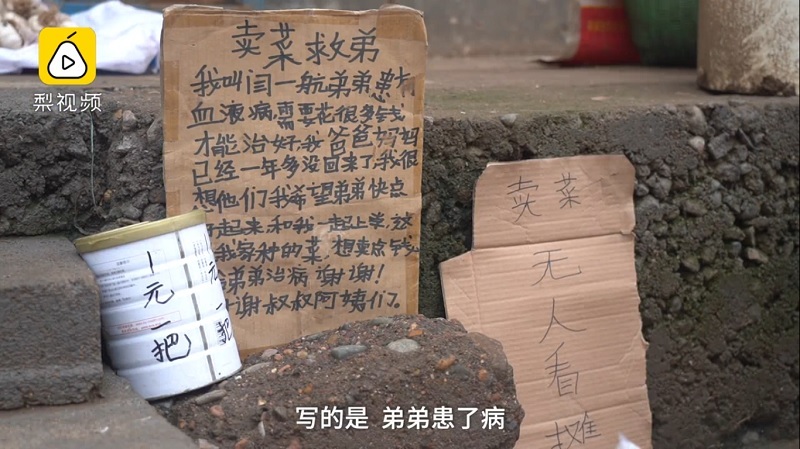 梨视频
卖菜救弟
我叫闫一航弟弟患
血液病,需要花很多钱
才能治好,我爸爸妈妈
已经一年多没回来了,我很
想他们我希望弟弟快点
好起来和我一起上学,这
我家种的菜,想卖点钱
弟弟治病谢谢!
谢叔叔阿姨们。
1元一把
元一把
卖菜
无人看摊
写的是 弟弟患了病